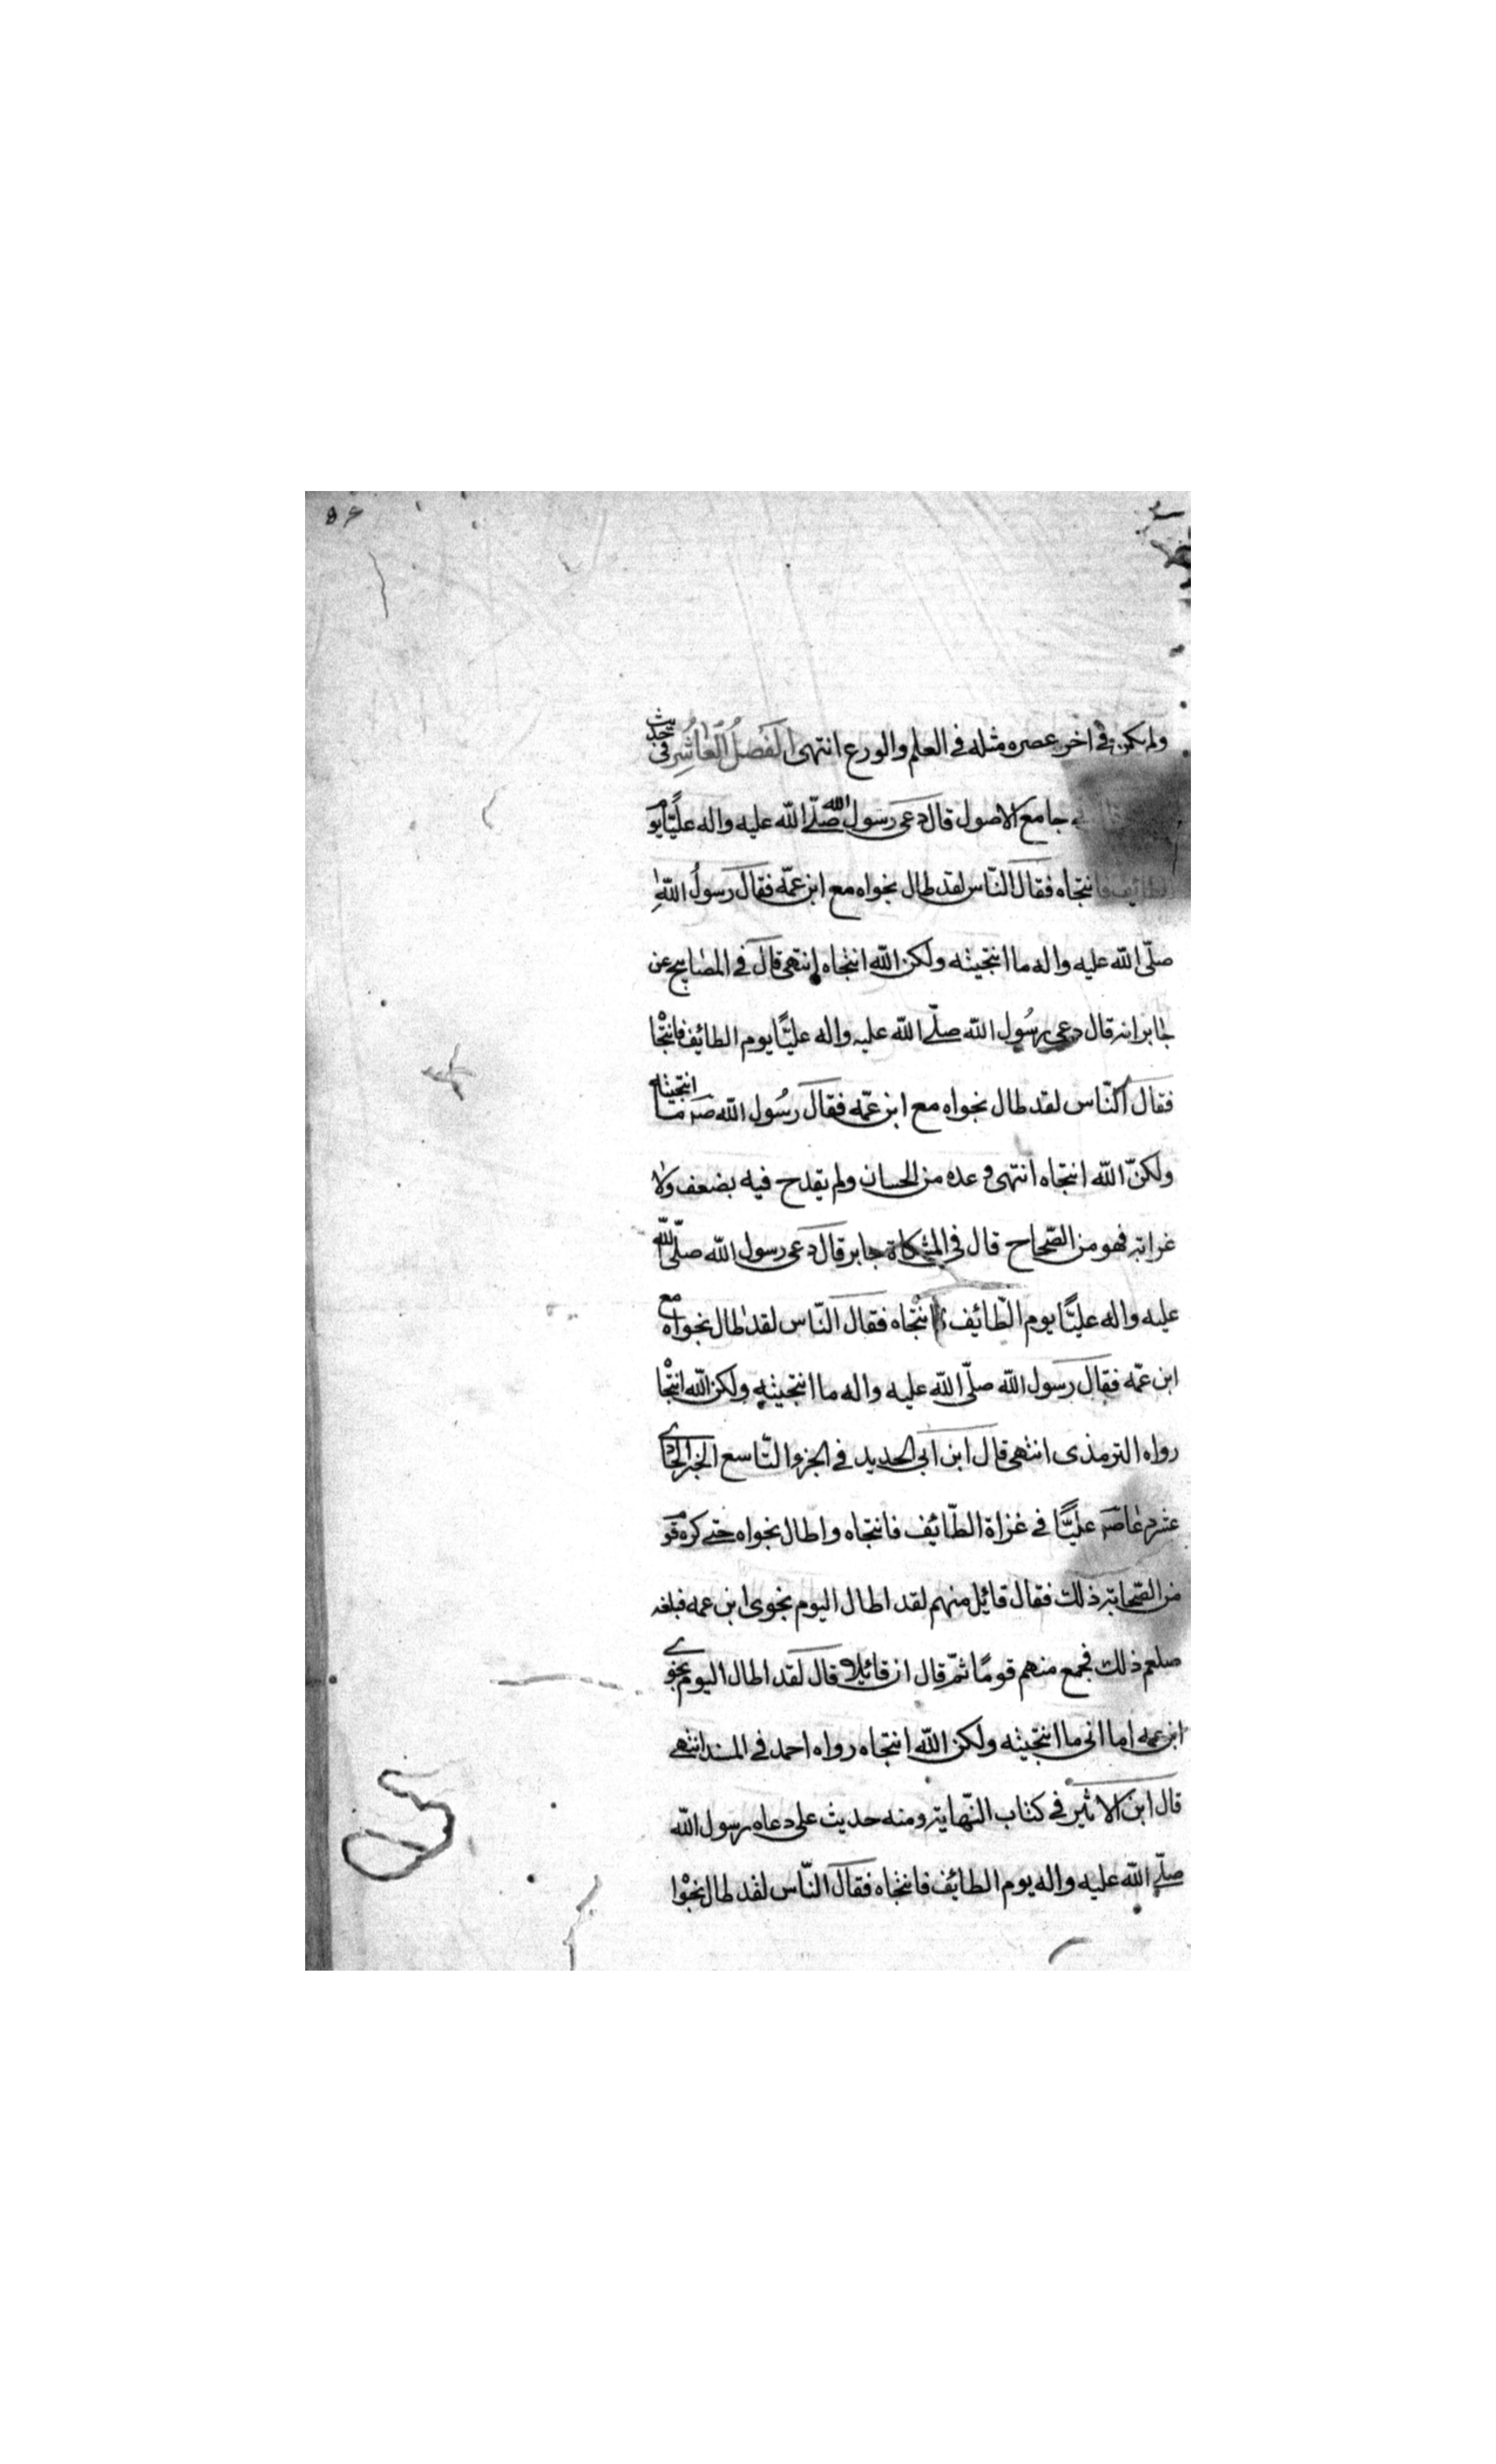 ٥٦
ولم يكن في اخر عصره مثله في العلم والورع انتهى الفصل العاشر في حديث
في جامع الاصول قال دعى رسول الله صلّى الله عليه واله عليًّا يوم
الطائف فانتجاه فقال النّاس لقد طال نجواه مع ابن عمّه فقال رسول الله
صلّى الله عليه واله ما انتجيته ولكن الله انتجاه انتهى قال في المصابيح عن
جابر انه قال دعى رسُول الله صلّى الله عليه واله عليًّا يوم الطائف فانتجا
فقال النّاس لقد طال نجواه مع ابن عمّه فقال رسُول الله صه ما انتجيته
ولكنّ الله انتجاه انتهى وعده من الحسان ولم يقدح فيه بضعف ولا
غرابة فهو من الصّحاح قال في المشكاة جابر قال دعى رسول الله صلّى الله
عليه واله عليًّا يوم الطّائف فانتجاه فقال النّاس لقد طال نجواه مع
ابن عمّه فقال رسول الله صلّى الله عليه واله ما انتجيته ولكن الله انتجا
رواه الترمذى انتهى قال ابن ابى الحديد في الجزو التّاسع الخبر الحادي
عشر دعا صه عليًّا في غزاة الطّائف فانتجاه واطال نجواه حتى كره قوم
من الصّحابة ذلك فقال قائل منهم لقد اطال اليوم نجوى ابن عمه فبلغه
صلعم ذلك فجمع منهم قومًا ثمّ قال ان قائلا قال لقد اطال اليوم نجوي
ابن عمه اما انى ما انتجيته ولكن الله انتجاه رواه احمد في المسند انتهى
قال ابن الاثير في كتاب النّهاية ومنه حديث على دعاه رسول الله
صلّى الله عليه واله يوم الطائف فانتجاه فقال النّاس لقد طال نجوا